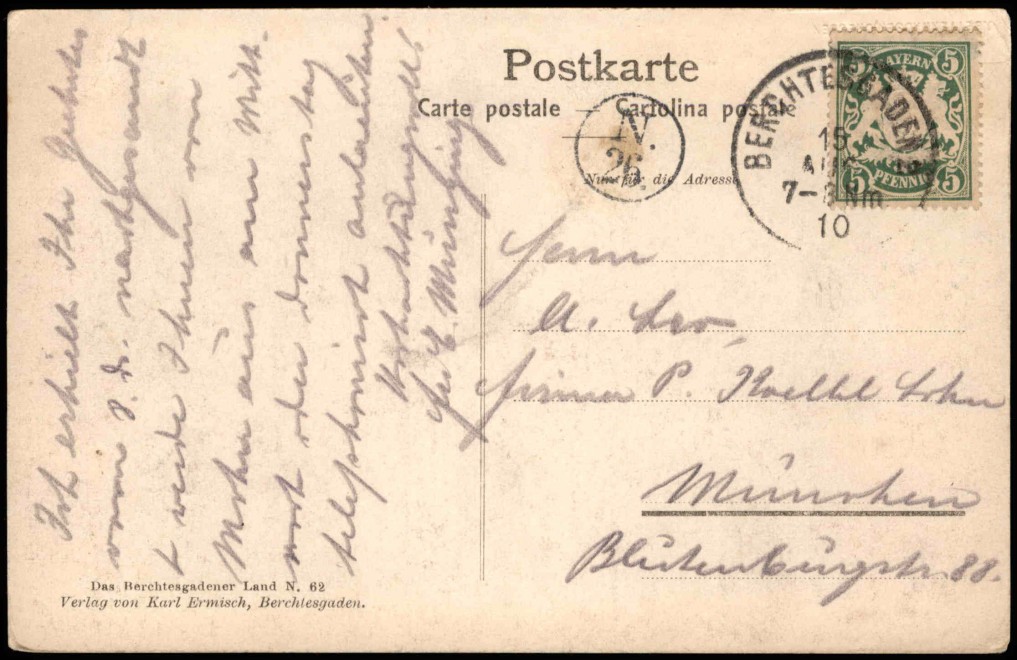 Postkarte
Carte postale — Cartolina postale
Nur für die Adresse
BAYERN
5 5
5 PFENNIG 5
BERCHTESGADEN
15
AUG
7-8 Nm
10
IV.
26
Herrn
A.
Firma P.
München
Blutenburgstr. 88.
Ich erhielt Ihr
vom 8. ds. nachgesandt
& werde Ihnen von
aus am Mitt-
woch oder Donnerstag
telephonisch
Hochachtungsvoll!
Das Berchtesgadener Land N. 62
Verlag von Karl Ermisch, Berchtesgaden.